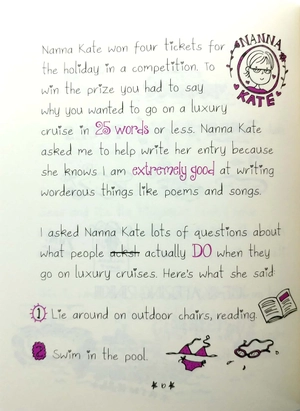 NANNA
KATE
Nanna Kate won four tickets for
the holiday in a competition. To
win the prize you had to say
why you wanted to go on a luxury
cruise in 25 words or less. Nanna Kate
asked me to help write her entry because
she knows I am extremely good at writing
worderous things like poems and songs.
I asked Nanna Kate lots of questions about
what people acksh actually DO when they
go on luxury cruises. Here's what she said:
1 Lie around on outdoor chairs, reading.
2 Swim in the pool.